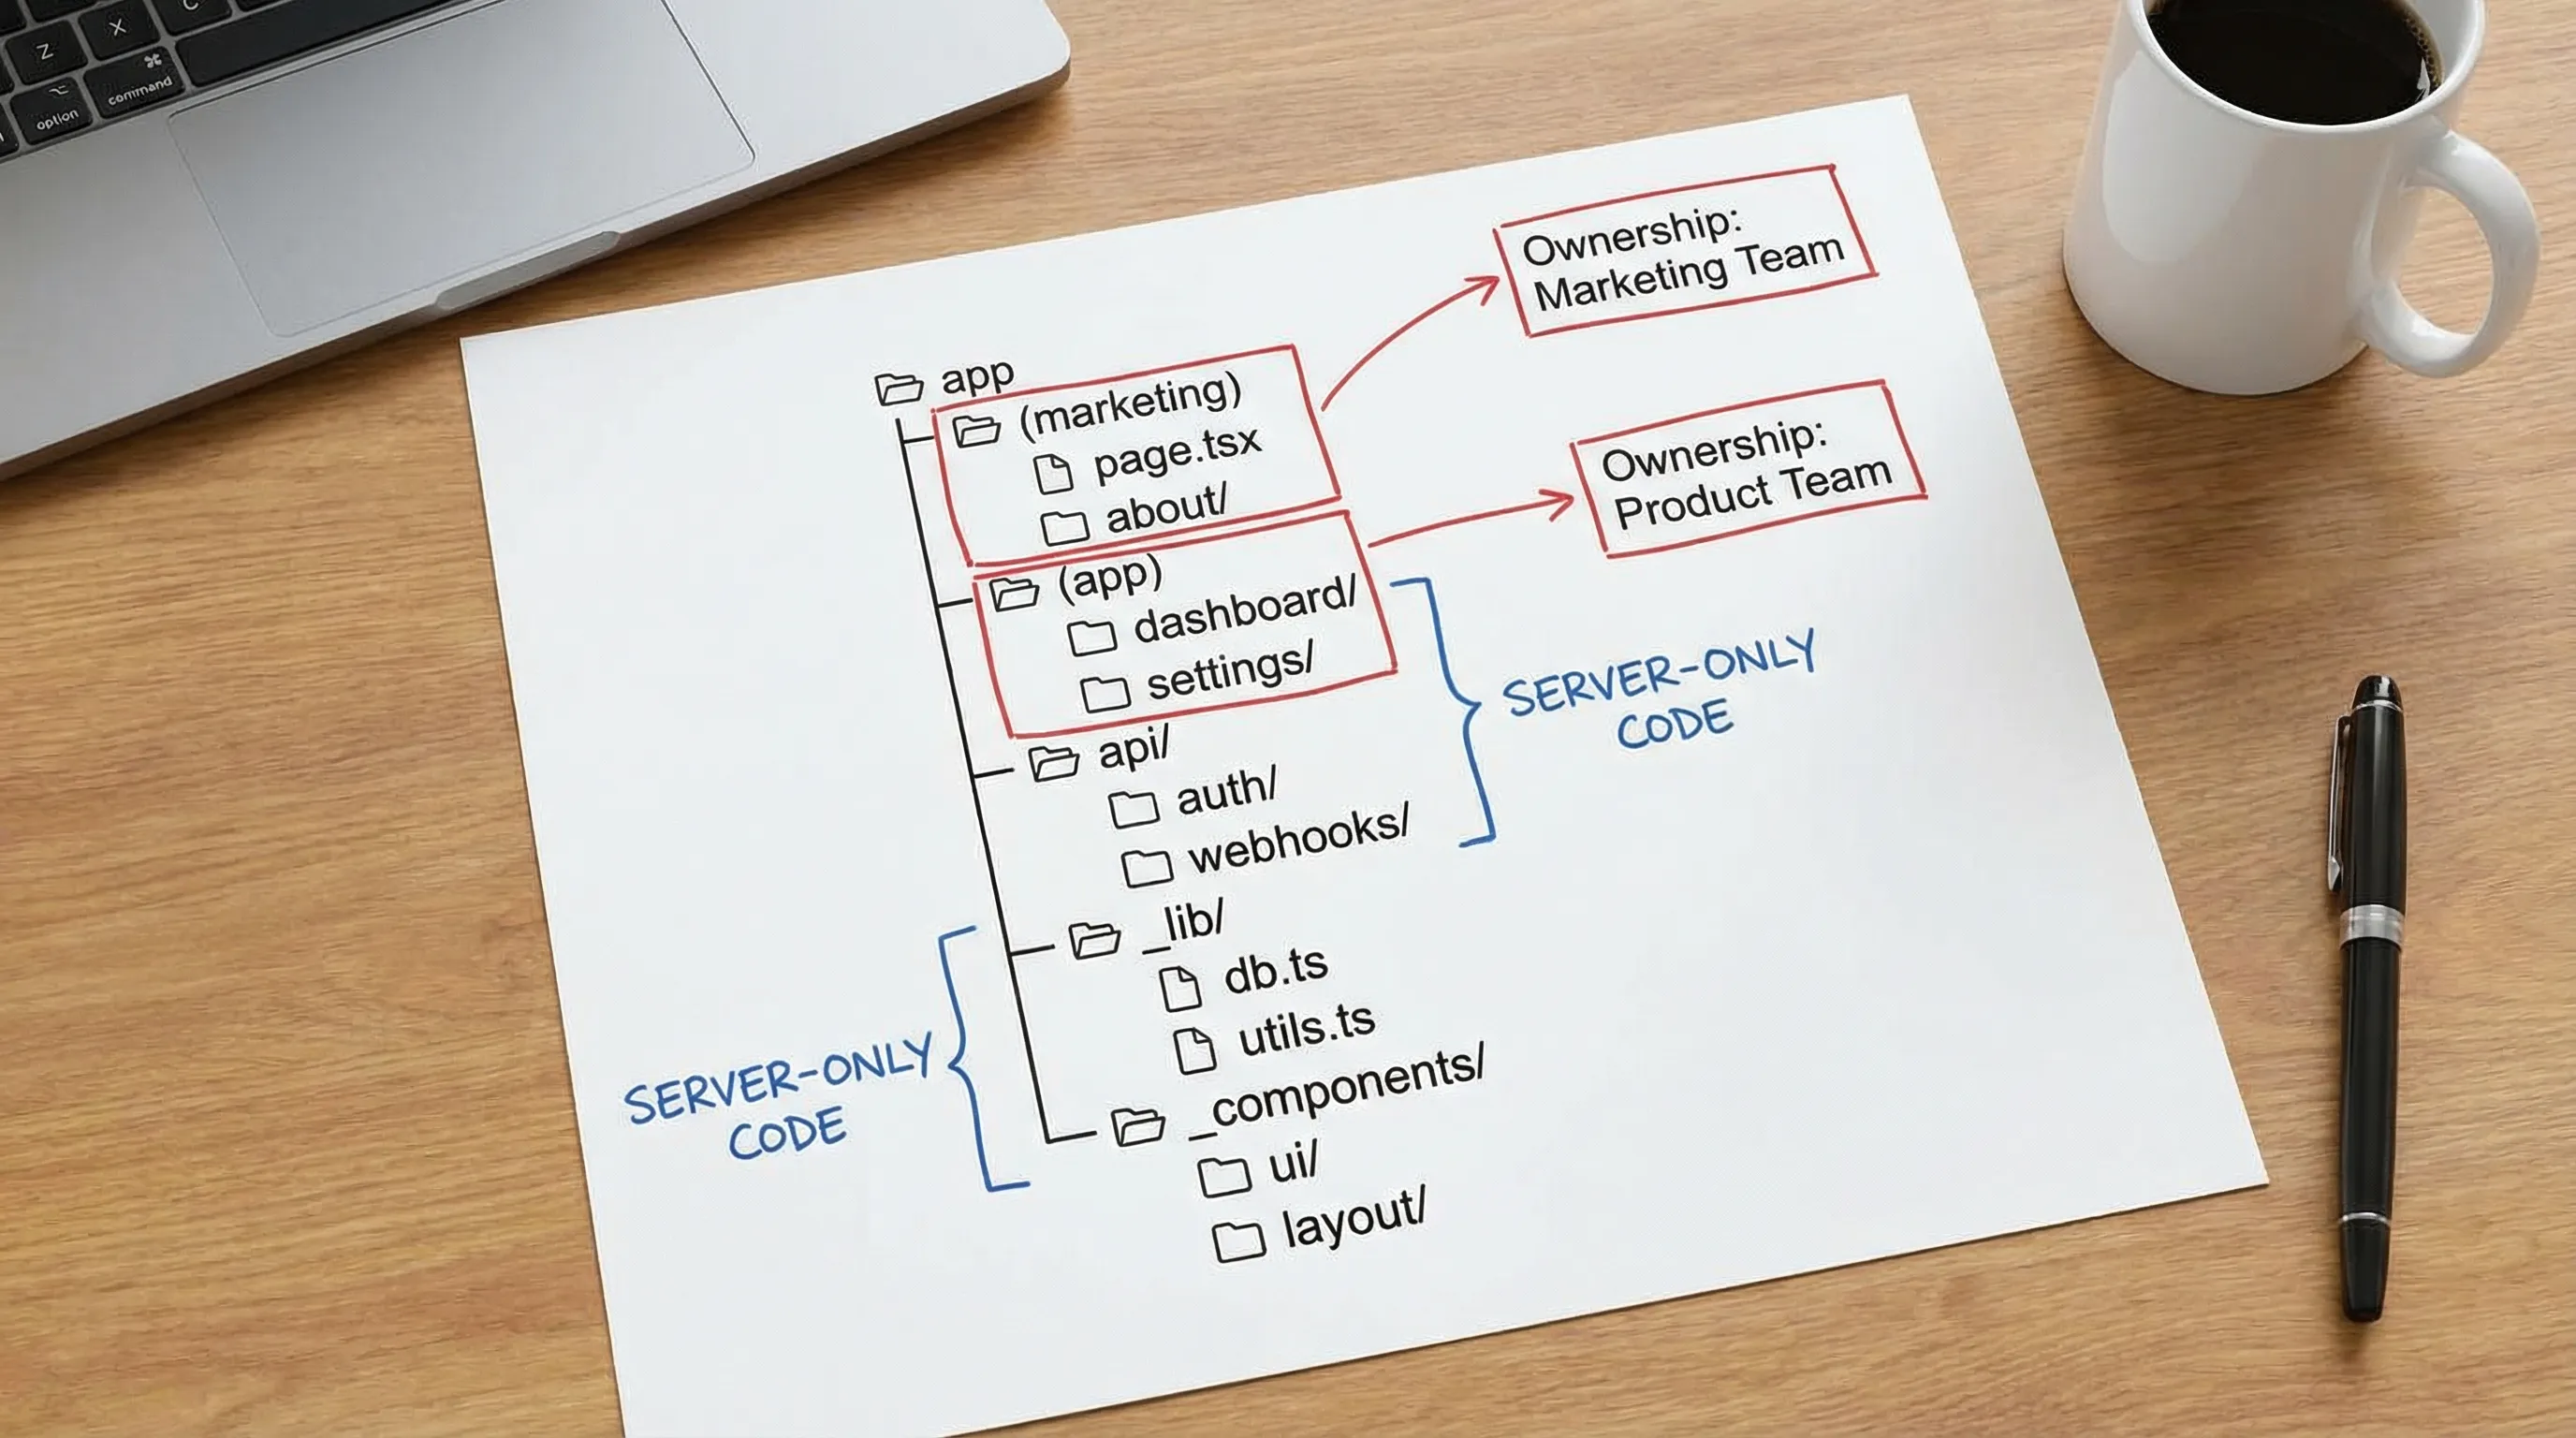 Z
X
C
option
command
Ownership:
Marketing Team
app
(marketing)
page.tsx
about/
Ownership:
Product Team
(app)
dashboard/
settings/
SERVER-ONLY
CODE
api/
auth/
webhooks/
_lib/
db.ts
utils.ts
SERVER-ONLY
CODE
_components/
ui/
layout/